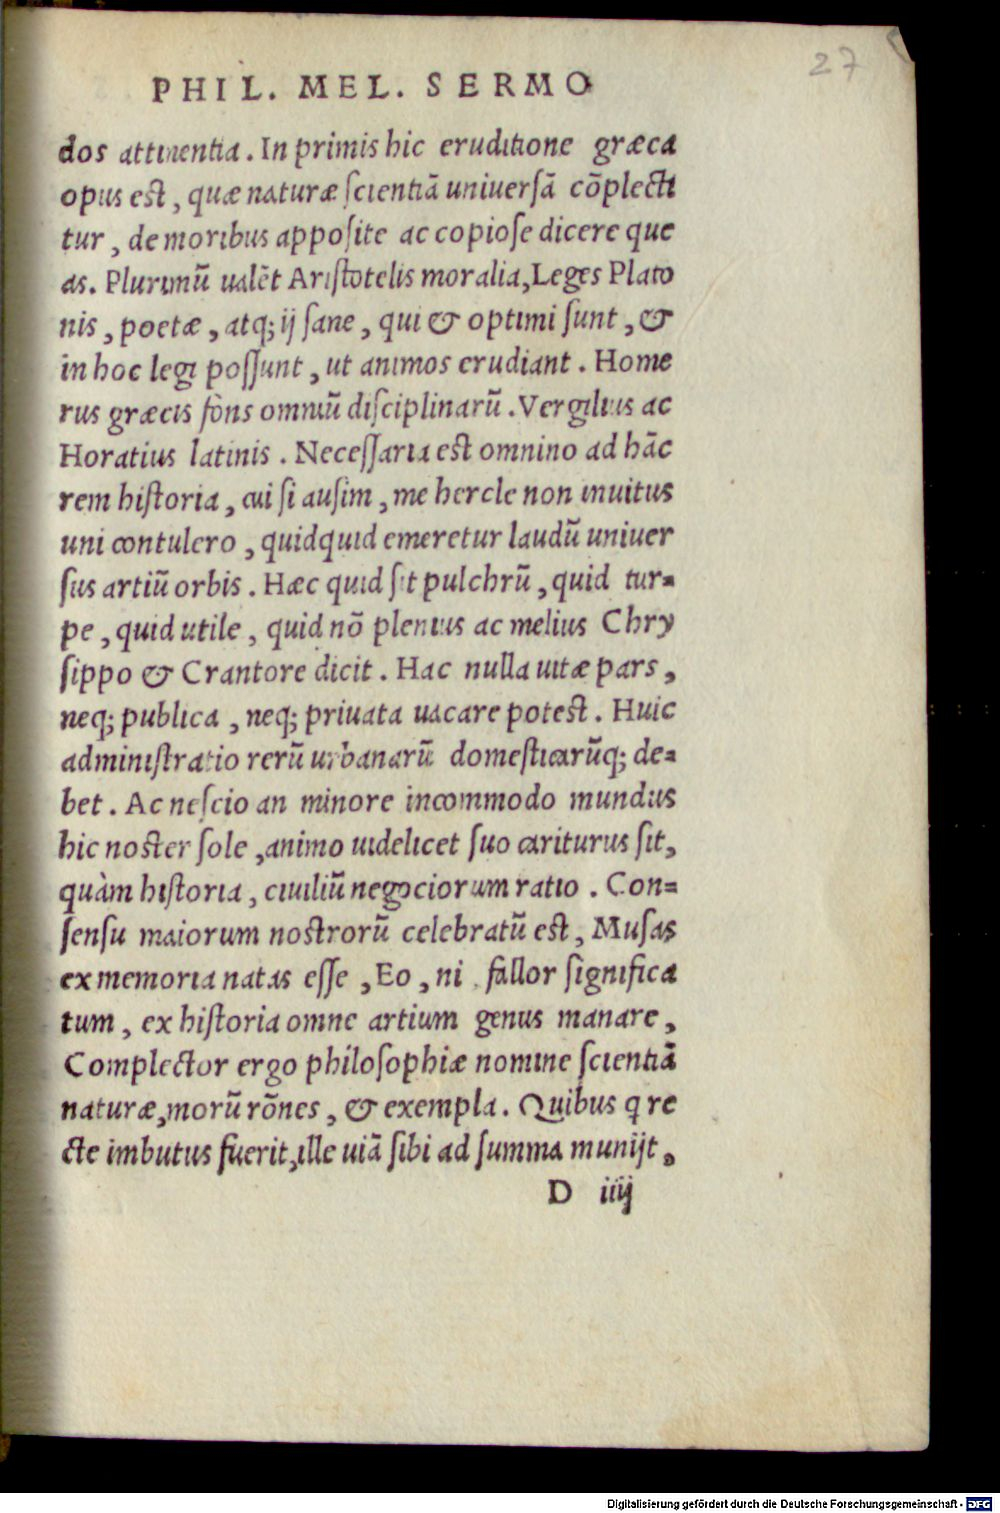 27
PHIL. MEL. SERMO
dos attinentia. In primis hic eruditione græca
opus est, quæ naturæ ſcientiā uniuerſā cōplecti
tur, de moribus appoſite ac copioſe dicere que
as. Plurimū ualēt Ariſtotelis moralia, Leges Plato
nis, poetæ, atq; ij ſane, qui & optimi ſunt, &
in hoc legi poſſunt, ut animos erudiant. Home
rus græcis fons omniū diſciplinarū. Vergilius ac
Horatius latinis. Neceſſaria est omnino ad hāc
rem hiſtoria, cui ſi auſim, me hercle non inuitus
uni contulero, quidquid emeretur laudū uniuer
ſus artiū orbis. Hæc quid ſit pulchrū, quid tur=
pe, quid utile, quid nō plenius ac melius Chry
ſippo & Crantore dicit. Hac nulla uitæ pars,
neq; publica, neq; priuata uacare potest. Huic
adminiſtratio rerū urbanarū domeſticarūq; de=
bet. Ac neſcio an minore incommodo mundus
hic noster ſole, animo uidelicet ſuo cariturus ſit,
quàm hiſtoria, ciuiliū negociorum ratio. Con=
ſenſu maiorum nostrorū celebratū est, Muſas
ex memoria natas eſſe, Eo, ni fallor ſignifica
tum, ex hiſtoria omne artium genus manare,
Complector ergo philoſophiæ nomine ſcientiā
naturæ, morū rōnes, & exempla. Quibus q re
cte imbutus fuerit, ille uiā ſibi ad ſumma munijt,
D iiij
Digitalisierung gefördert durch die Deutsche Forschungsgemeinschaft - DFG